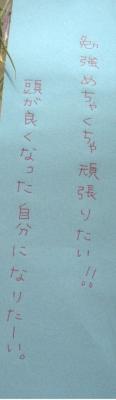 勉強めちゃくちゃ頑張りたい!!
頭が良くなった自分になりたーい。